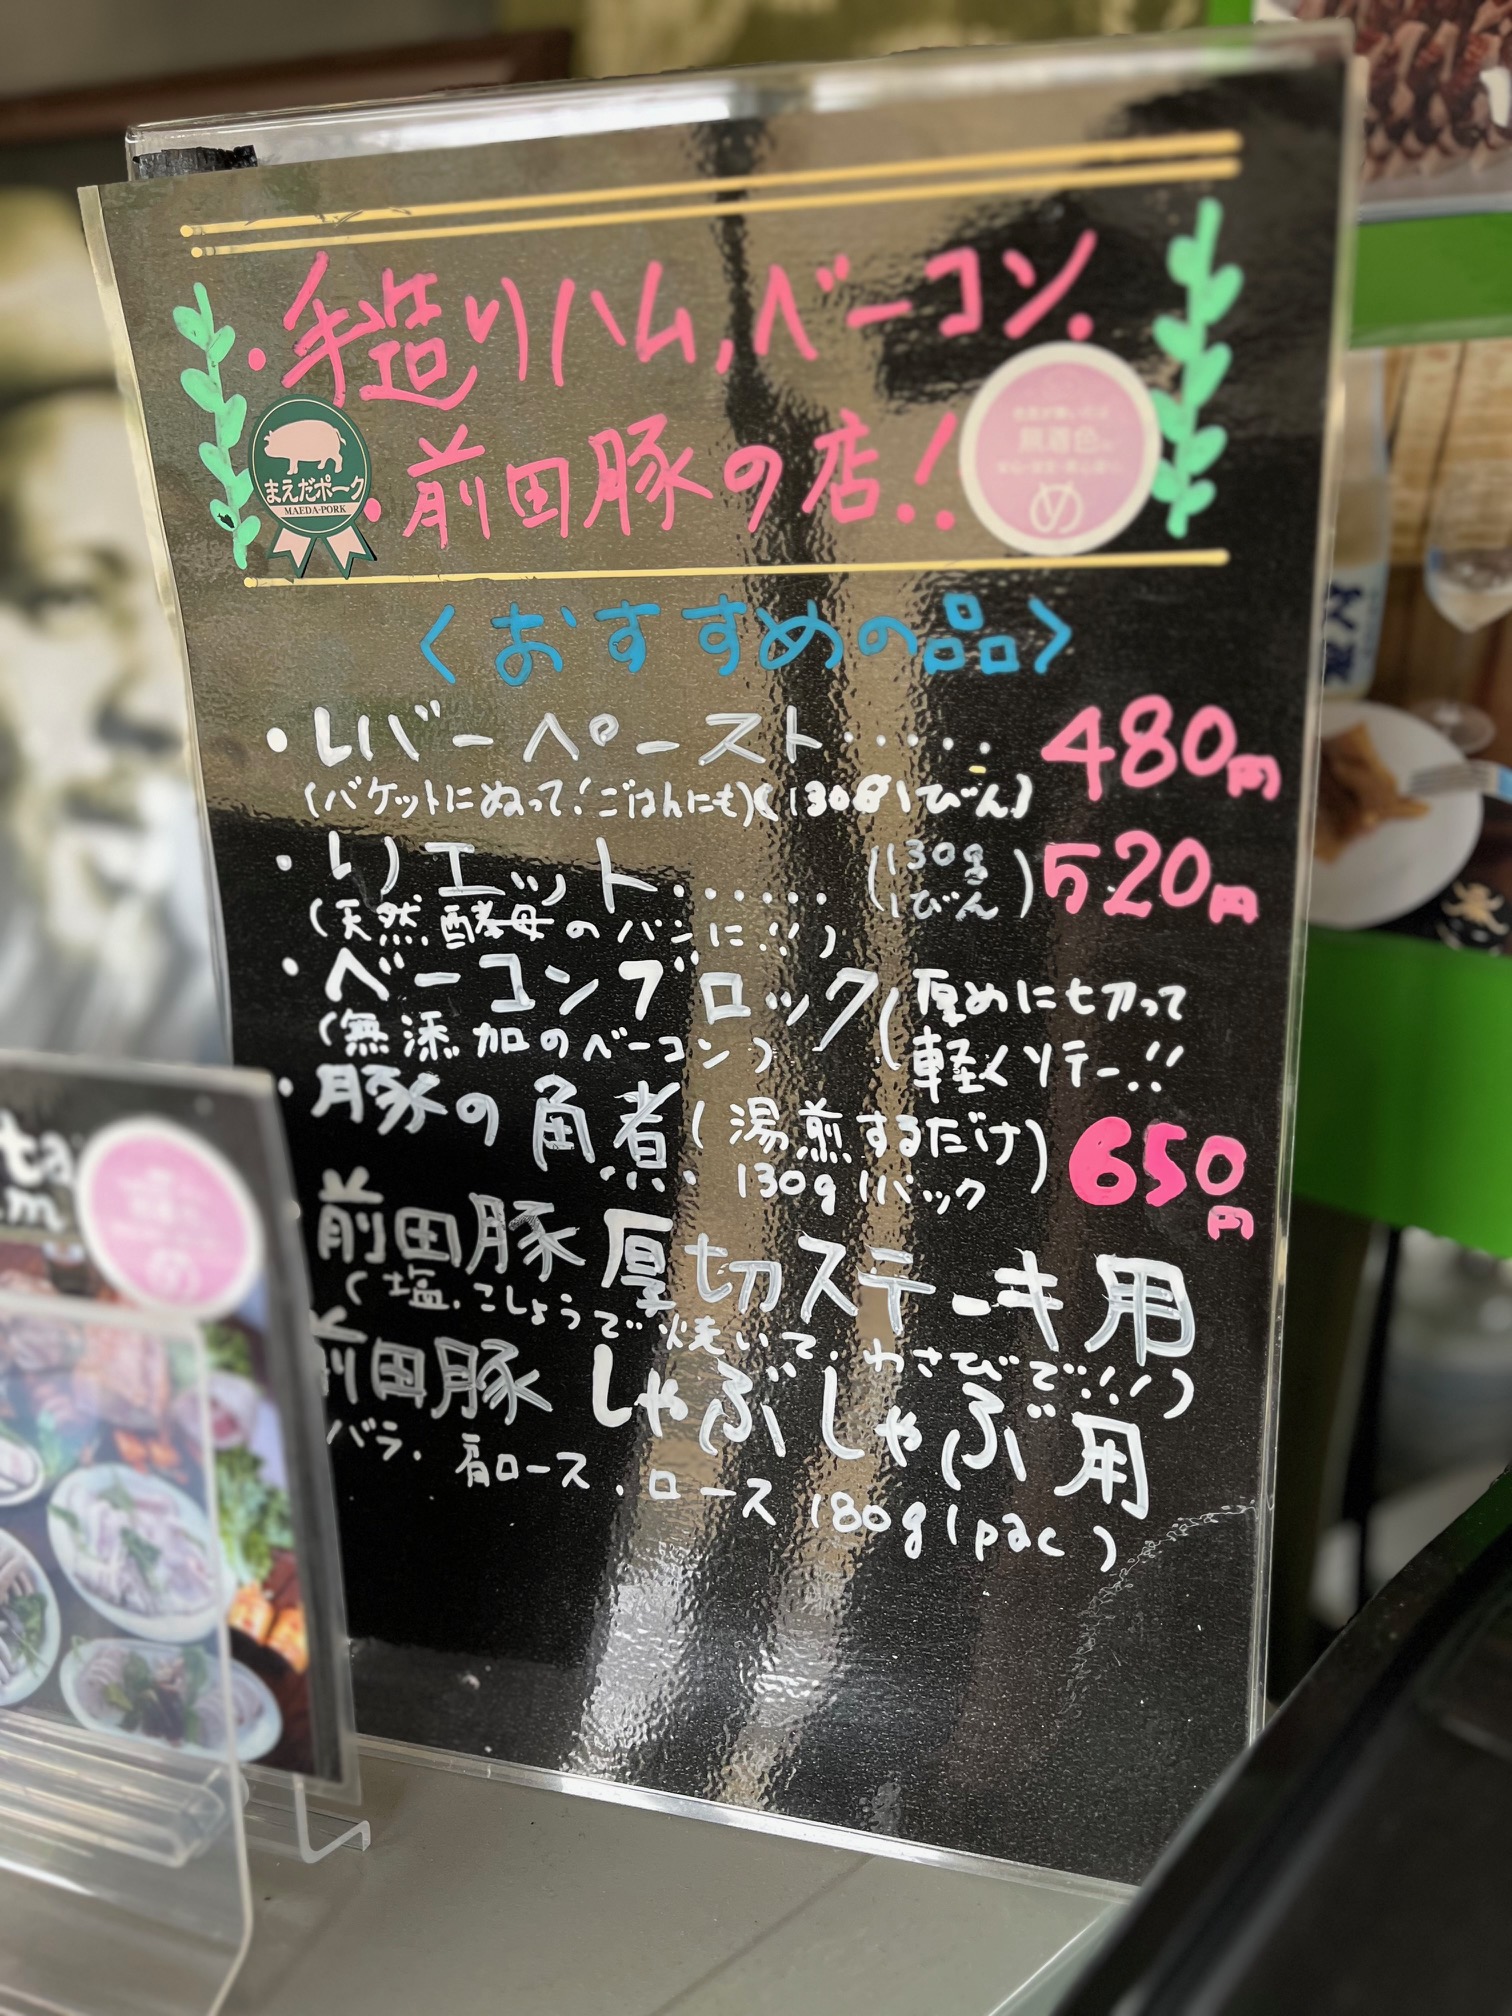 ・手造りハム,ベーコン.
・前田豚の店!.
まえだポーク
MAEDA-PORK
無着色
め
〈おすすめの品〉
・レバーペースト・・・・・ 480円
(バケットにぬって!ごはんにも)(130g1びん)
・リエット...... (130g 1びん) 520円
(天然酵母のパンに!!)
・ベーコンブロック(厚めに切って
(無添加のベーコン) 軽くソテー!!
・豚の角煮(湯煎するだけ) 650円
130g1パック
前田豚厚切ステーキ用
(塩、こしょうで焼いて、わさびで!!)
前田豚しゃぶしゃぶ用
バラ、肩ロース、ロース 180g1pac)